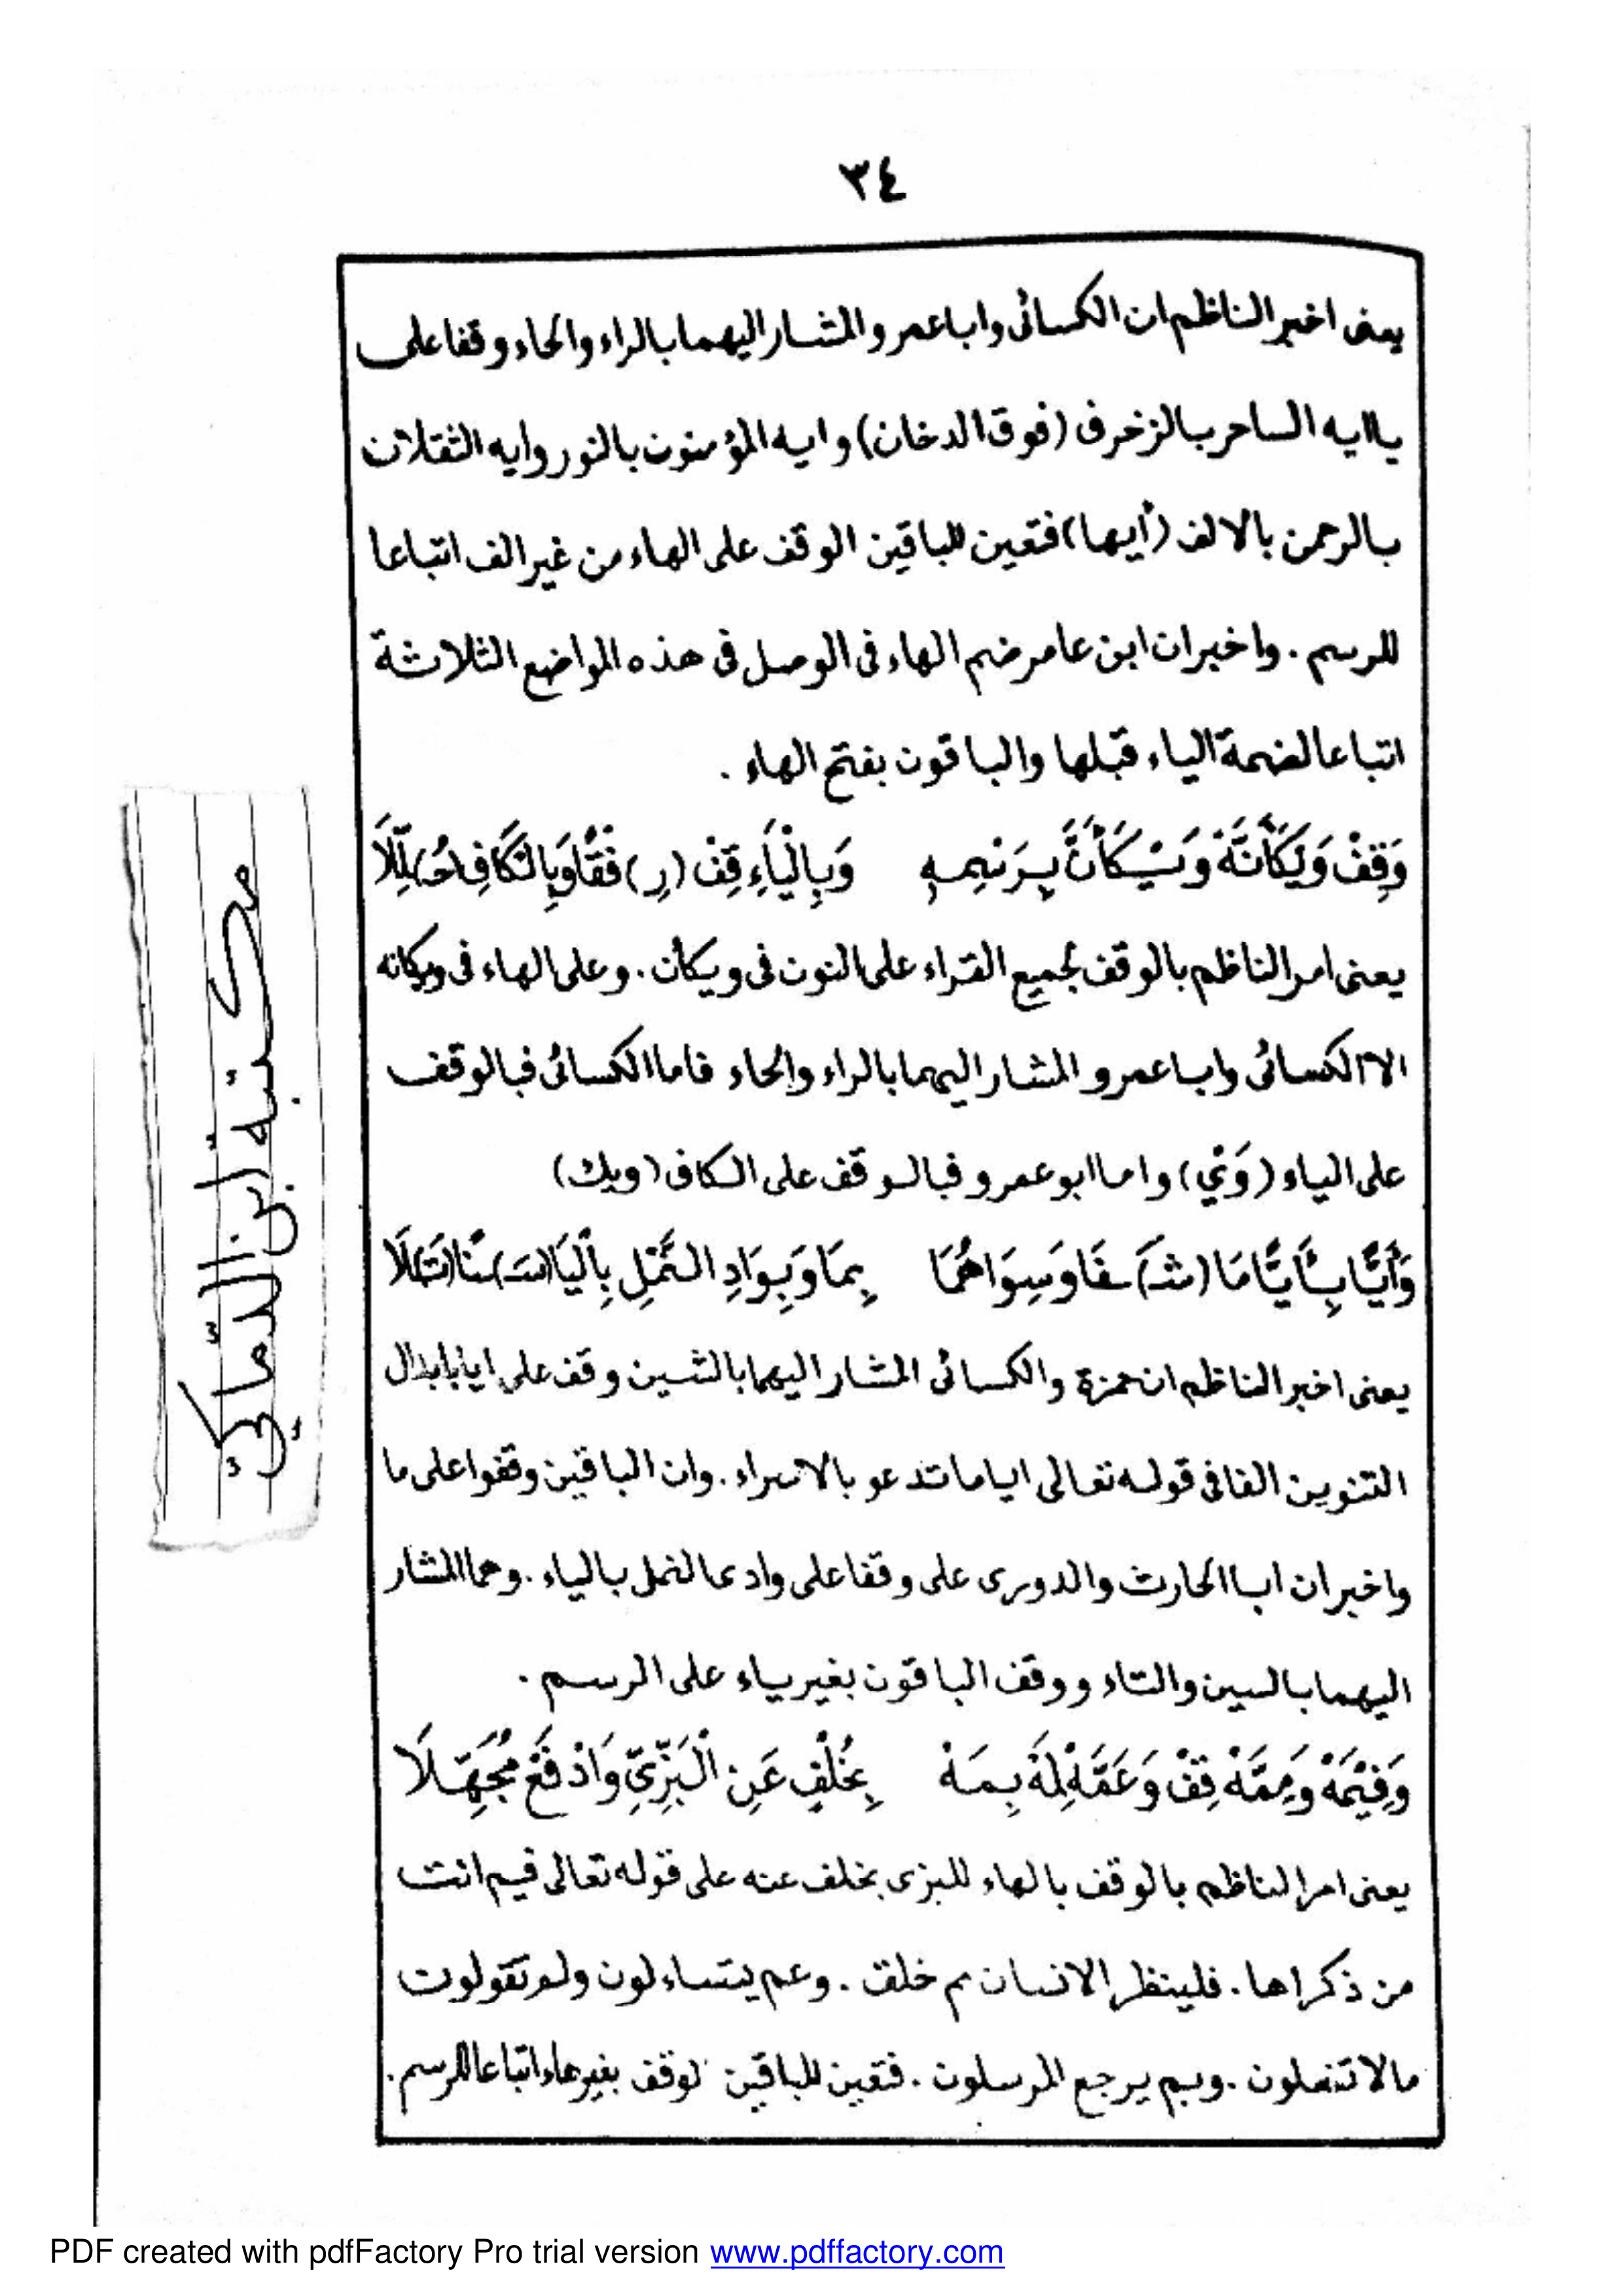 ٣٤
يعنى اخبر الناظم ان الكسائى وابا عمرو المشار اليهما بالراء والحاء وقفا على
يا ايه الساحر بالزخرف (فوق الدخان) وايه المؤمنون بالنور وايه الثقلان
بالرحمن بالالف (أيها) فتعين للباقين الوقف على الهاء من غير الف اتباعا
للرسم . واخبر ان ابن عامر ضم الهاء فى الوصل فى هذه المواضع الثلاثة
اتباعا لضمة الياء قبلها والباقون بفتح الهاء .
وَقِفْ وَيْكَأَنَّهْ وَيْكَأَنَّ بِرَسْمِهِ وَبِالْيَاءِ قِفْ (رِ) فْقًا وَبِالْكَافِ (حُ) لِّلَا
يعنى امر الناظم بالوقف لجميع القراء على النون فى ويكأن . وعلى الهاء فى ويكانه
الا الكسائى وابا عمرو المشار اليهما بالراء والحاء فاما الكسائى فبالوقف
على الياء (وَيْ) واما ابو عمرو فبالوقف على الكاف (ويك)
وَأَيًّا بِأَيًّا مَا (شَـ) ـفَا وَسِوَاهُمَا بِمَا وَبِوَادِ النَّمْلِ بِالْيَا (سَـ) ـنًا (تَـ) ـلَا
يعنى اخبر الناظم ان حمزة والكسائى المشار اليهما بالشين وقف على ايا بابدال
التنوين الفا فى قوله تعالى ايا ما تدعو بالاسراء . وان الباقين وقفوا على ما
واخبر ان ابا الحارث والدورى على وقفا على وادى النمل بالياء . وهما المشار
اليهما بالسين والتاء ووقف الباقون بغير ياء على الرسم .
وَفِيْمَهْ وَمِمَّهْ قِفْ وَعَمَّهْ لِمَهْ بِمَهْ بِخُلْفٍ عَنِ الْبَزِّيِّ وَادْفَعْ مُجَهِّلَا
يعنى امر الناظم بالوقف بالهاء للبزى بخلف عنه على قوله تعالى فيم انت
من ذكراها . فلينظر الانسان مم خلق . وعم يتساءلون ولم تقولون
مالا تفعلون . وبم يرجع المرسلون . فتعين للباقين لوقف بغير هاء اتباعا للرسم .
مكتبة ابن الدّماكي
PDF created with pdfFactory Pro trial version www.pdffactory.com